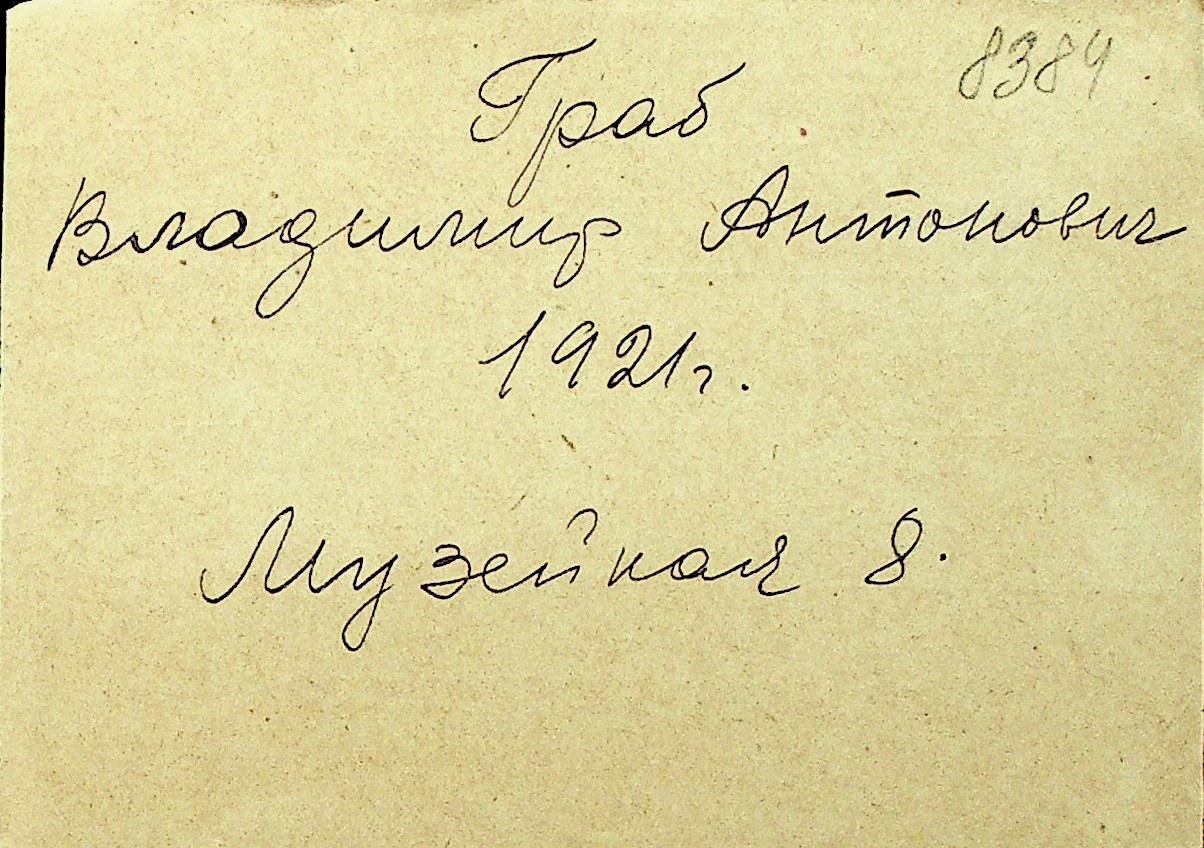 8384
Граб
Владимир Антонович
1921г.
Музейная 8.